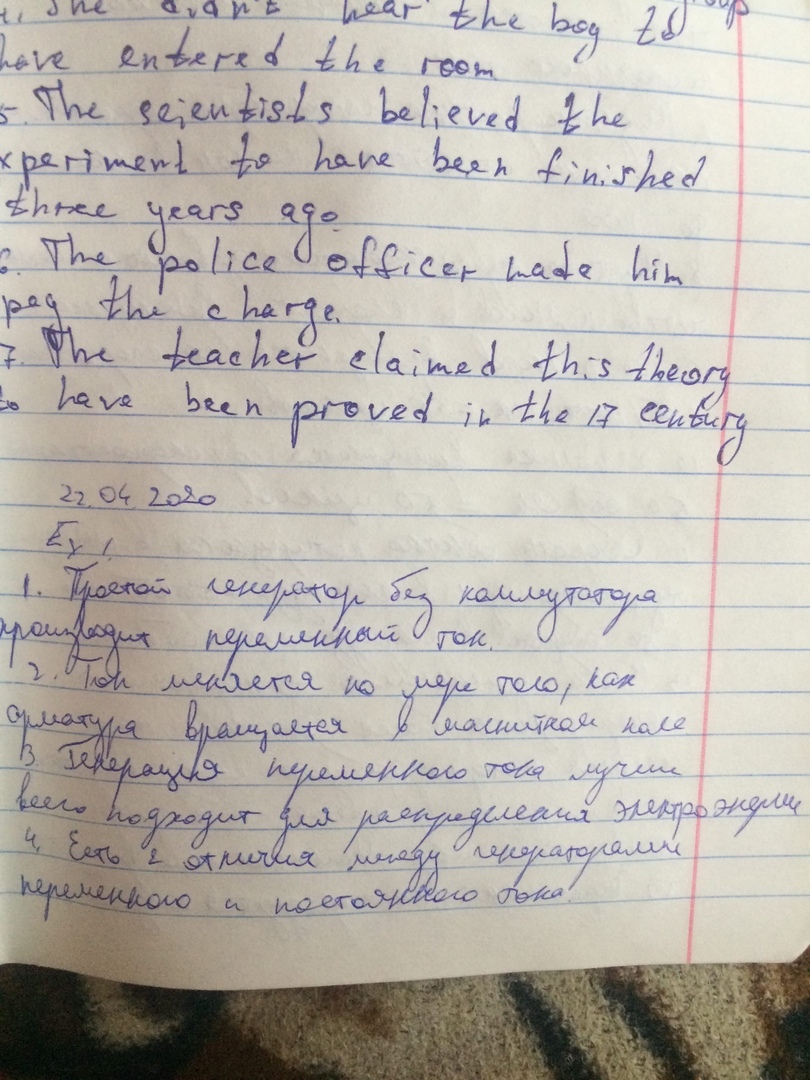 4. She didn't hear the boy to
have entered the room
5. The seientists believed the
xperiment to have been finished
three years ago.
6. The police officer made him
pay the charge.
7. The teacher claimed this theory
to have been proved in the 17 century
22.04.2020
Ex 1.
1. Простой генератор без коммутатора
производит переменный ток.
2. Ток меняется по мере того, как
арматура вращается в магнитном поле
3 Генерация переменного тока лучше
всего подходит для распределения электроэнергии
4. Есть 2 отличия между генераторами
переменного и постоянного тока.